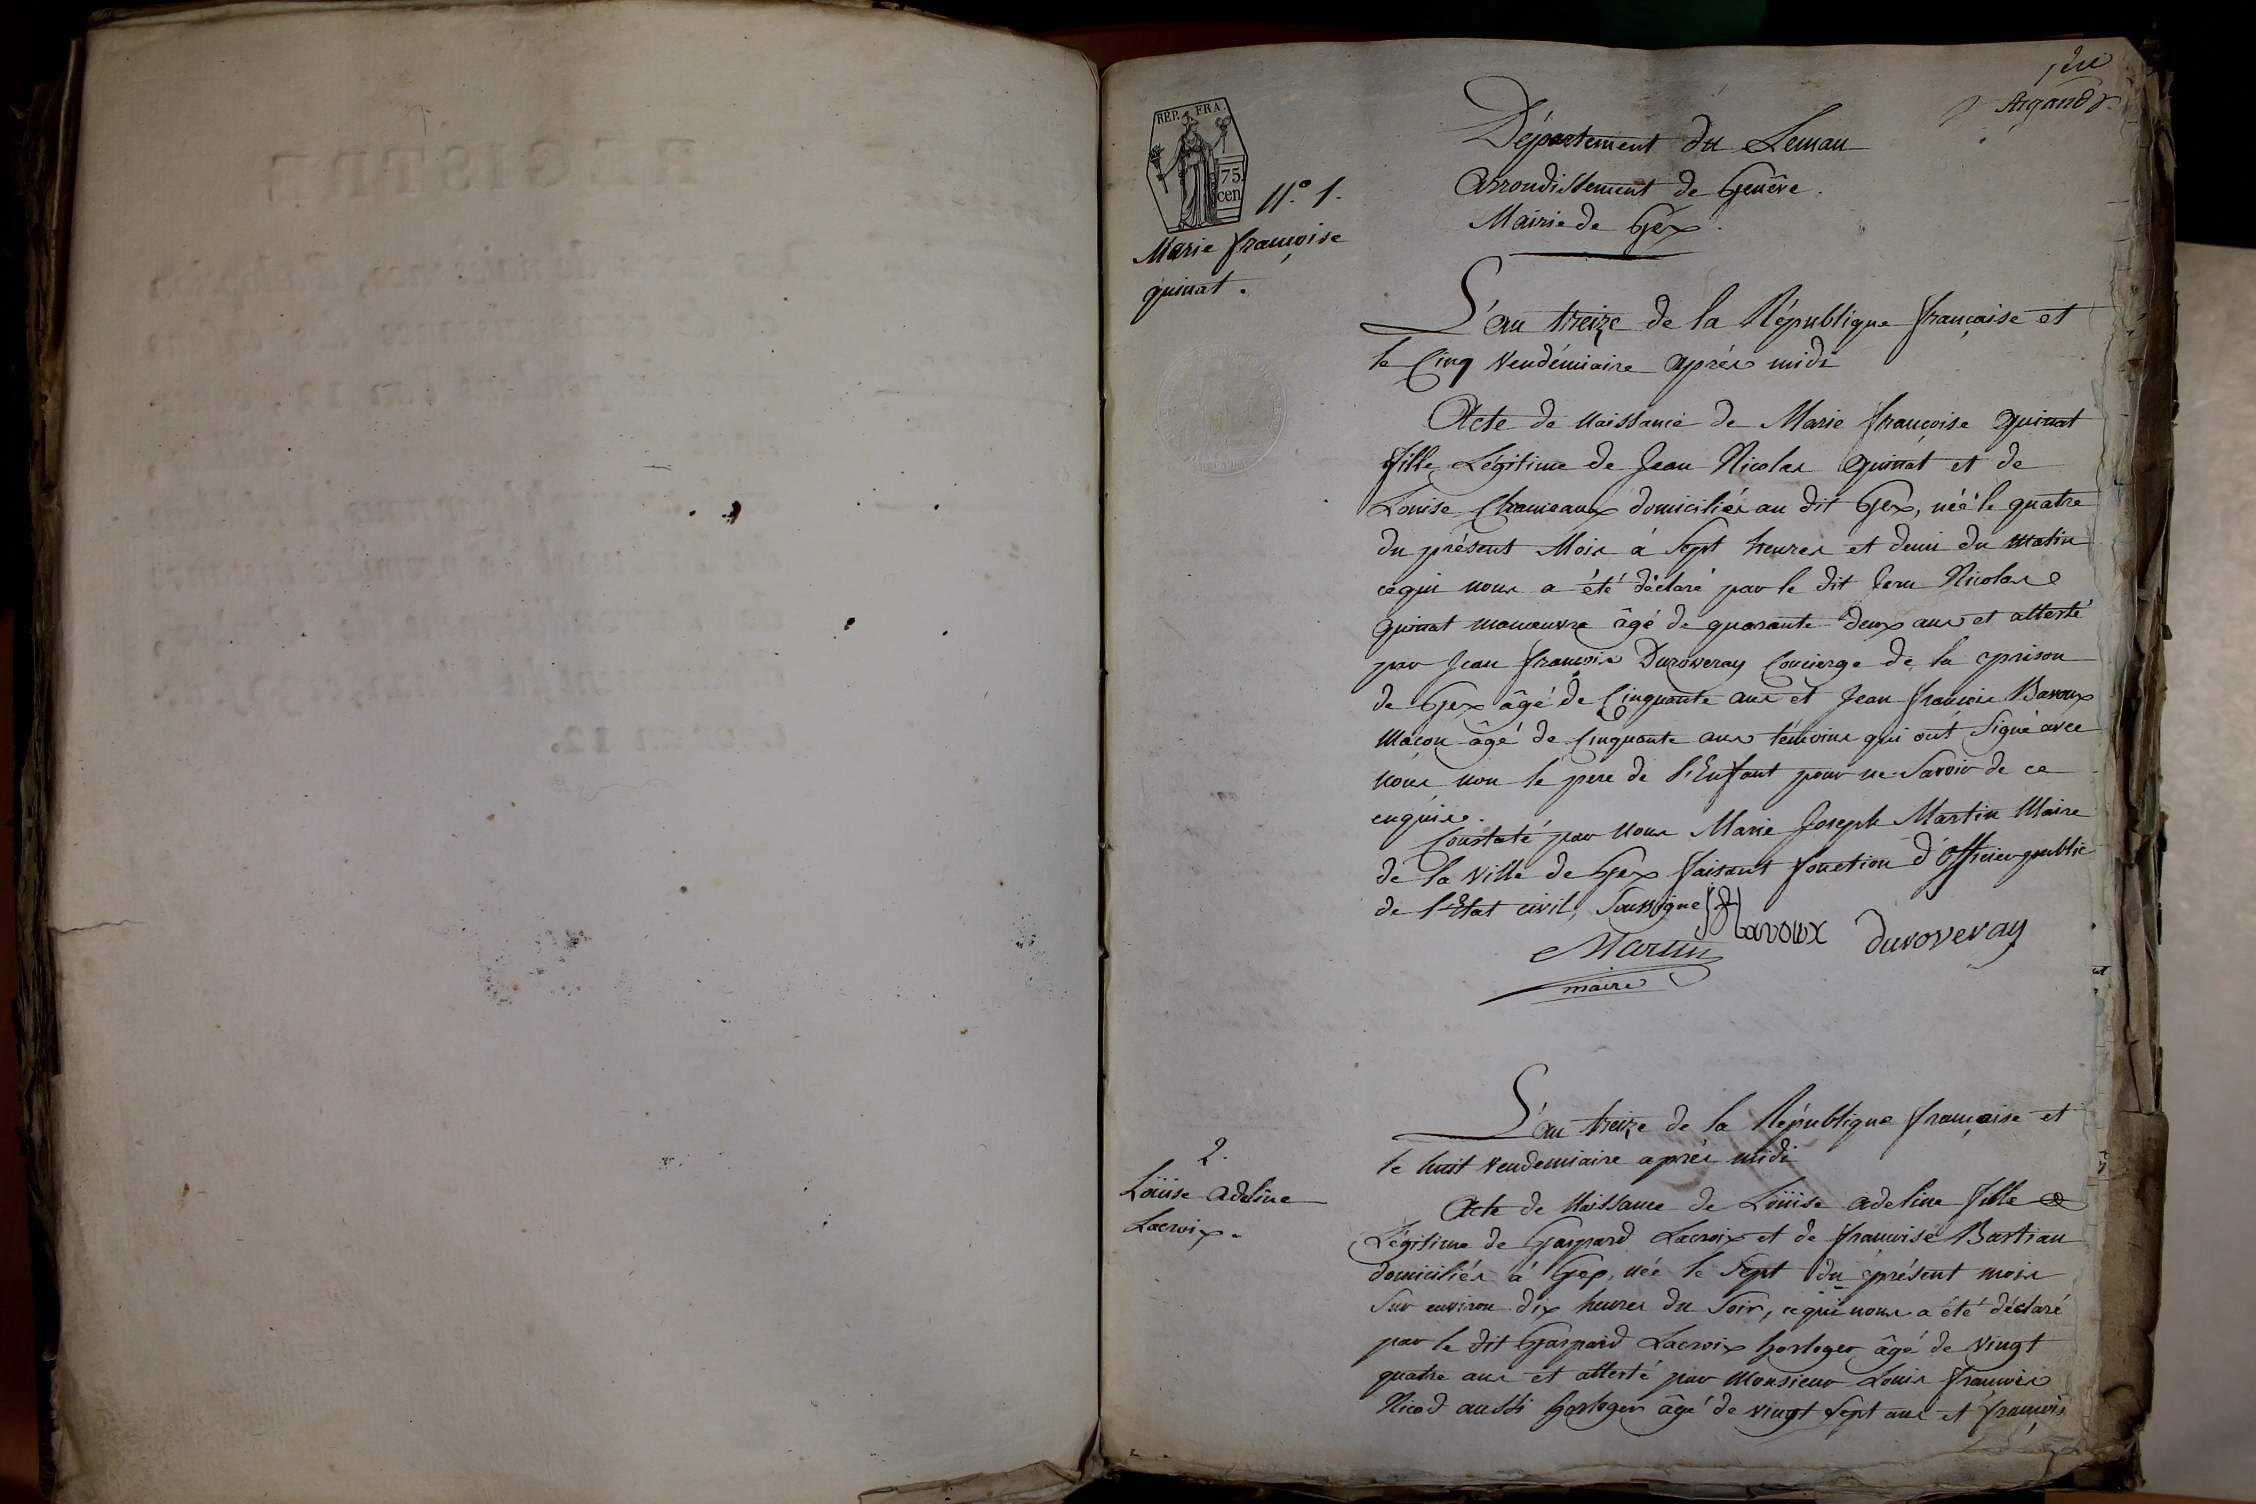 1ere
Argand
REP. FRA.
75.
cen
N.° 1.
Marie françoise
quinat.
Département du Leman
Arrondissement de Genêve.
Mairie de Gex.
L'an treize de la République française et
le Cinq Vendémiaire après midi
Acte de Naissance de Marie françoise quinat
fille Légitime de Jean Nicolas quinat et de
Louise domiciliés au dit Gex, née le quatre
du présent Mois à Sept heures et demi du matin
cequi nous a été déclaré par le dit Jean Nicolas
quinat manœuvre âgé de quarante deux ans et attesté
par Jean françois Duroveray Concierge de la prison
de Gex âgé de Cinquante ans et Jean françois Bavoux
Maçon âgé de Cinquante ans témoins qui ont Signé avec
Nous non le pere de l'Enfant pour ne Savoir de ce
enquise.
Constaté par Nous Marie Joseph Martin Maire
de la Ville de Gex faisant fonction d'officier public
de l'Etat civil, Soussigné
Bavoux duroveray
Martin
maire
2.
Loüise Adeline
Lacroix.
L'an treize de la République française et
le huit Vendemiaire après midi
Acte de Naissance de Loüise adeline fille
Légitime de Gaspard Lacroix et de françoise Bastian
domiciliés à Gex, née le Sept du présent mois
Sur environ dix heures du Soir, cequi nous a été déclaré
par le dit Gaspard Lacroix horloger âgé de Vingt
quatre ans et attesté par Monsieur Louis françois
Nicod aussi horloger âgé de vingt Sept ans et françois
REGISTRE